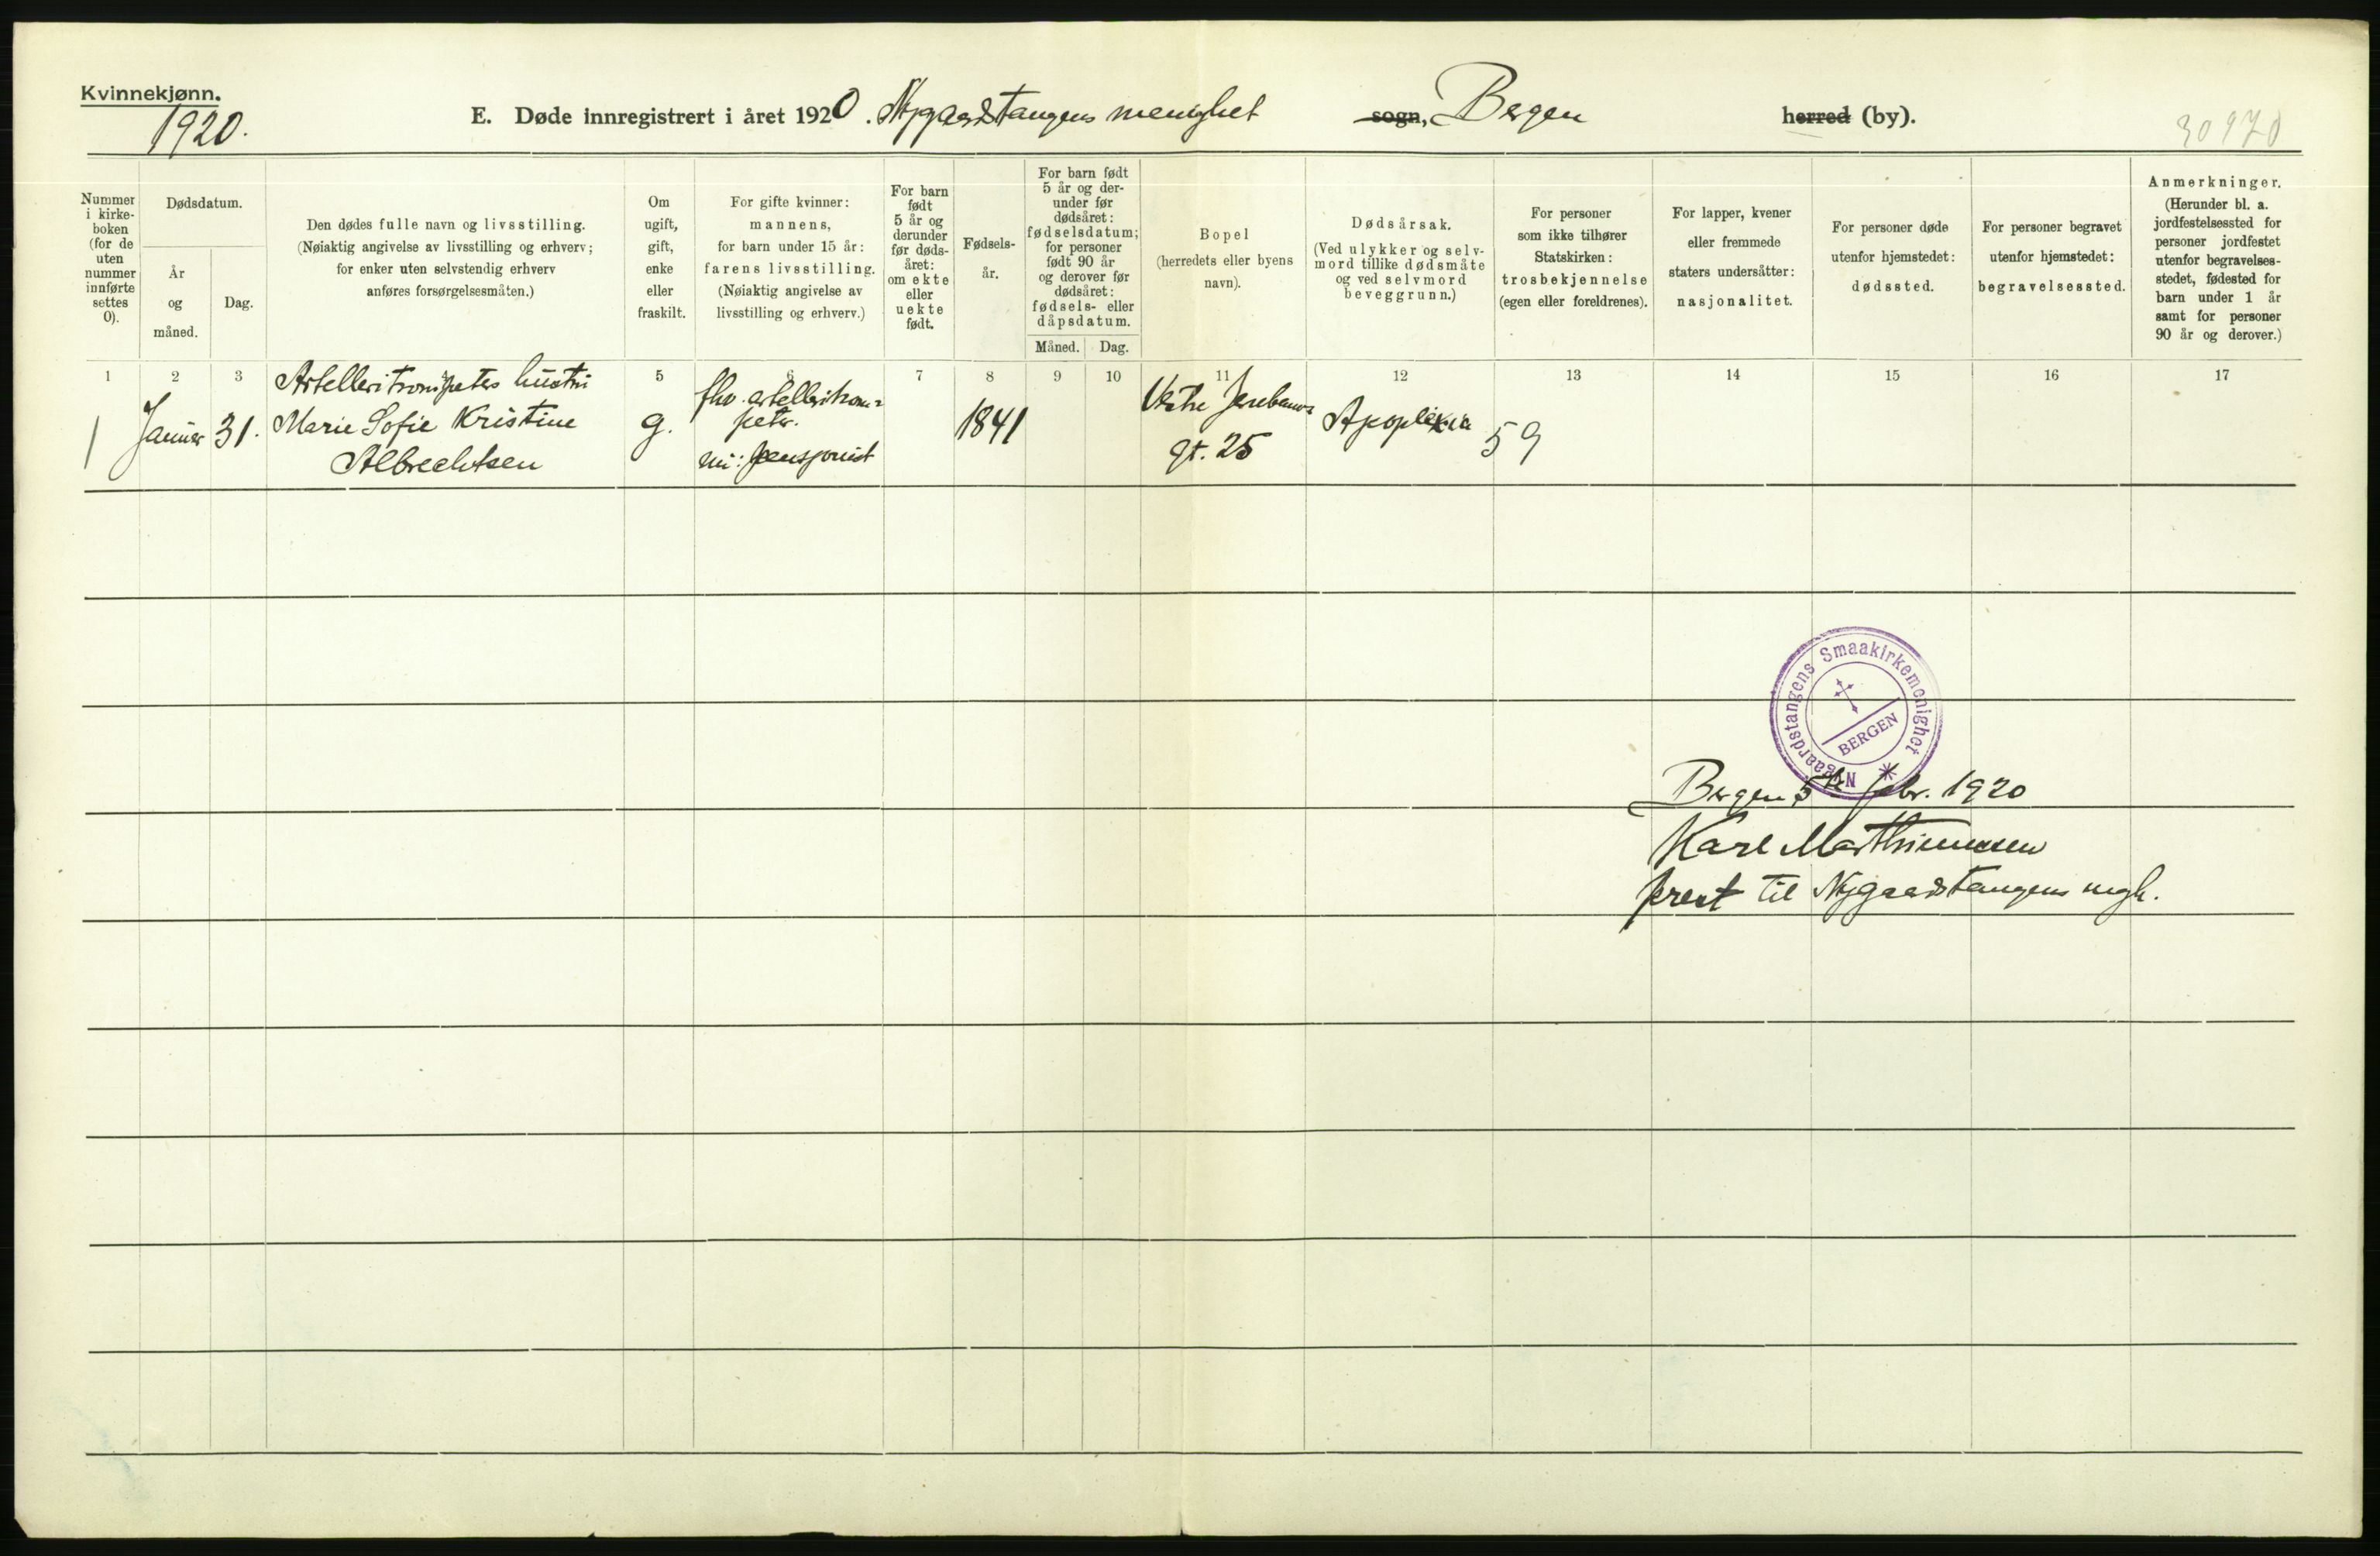 Kvinnekjønn.
1920.
E. Døde innregistrert i året 1920. Nygaardstangens menighet sogn, Bergen herred (by).
30970
Nummer i kirke- boken (for de uten nummer innførte settes 0).
Dødsdatum.
År og måned.
Dag.
Den dødes fulle navn og livsstilling.
(Nøiaktig angivelse av livsstilling og erhverv;
for enker uten selvstendig erhverv
anføres forsørgelsesmåten.)
Om ugift, gift, enke eller fraskilt.
For gifte kvinner:
mannens,
for barn under 15 år:
farens livsstilling.
(Nøiaktig angivelse av
livsstilling og erhverv.)
For barn født 5 år og derunder før døds- året: om ekte eller uekte født.
Fødsels- år.
For barn født
5 år og der-
under før
dødsåret:
fødselsdatum;
for personer
født 90 år
og derover før
dødsåret:
fødsels- eller
dåpsdatum.
Måned. Dag.
Bopel
(herredets eller byens
navn).
Dødsårsak.
(Ved ulykker og selv-
mord tillike dødsmåte
og ved selvmord
beveggrunn.)
For personer
som ikke tilhører
Statskirken:
trosbekjennelse
(egen eller foreldrenes).
For lapper, kvener
eller fremmede
staters undersåtter:
nasjonalitet.
For personer døde
utenfor hjemstedet:
dødssted.
For personer begravet
utenfor hjemstedet:
begravelsessted.
Anmerkninger.
(Herunder bl. a.
jordfestelsessted for
personer jordfestet
utenfor begravelses-
stedet, fødested for
barn under 1 år
samt for personer
90 år og derover.)
1 2 3 5 6 7 8 9 10 11 12 13 14 15 16 17
1 Januar 31.
Artelleritrompeters hustru
Marie Sofie Kristine
Albrechtsen
g.
fhv. artelleritrom=
peter.
nu: pensjonist
1841
Vestre
gt. 25
Apoplexia
59
Nygaardstangens Smaakirkemenighet
BERGEN
Bergen 5te febr. 1920
Karl Marthinussen
prest til Nygaardstangens mgh.